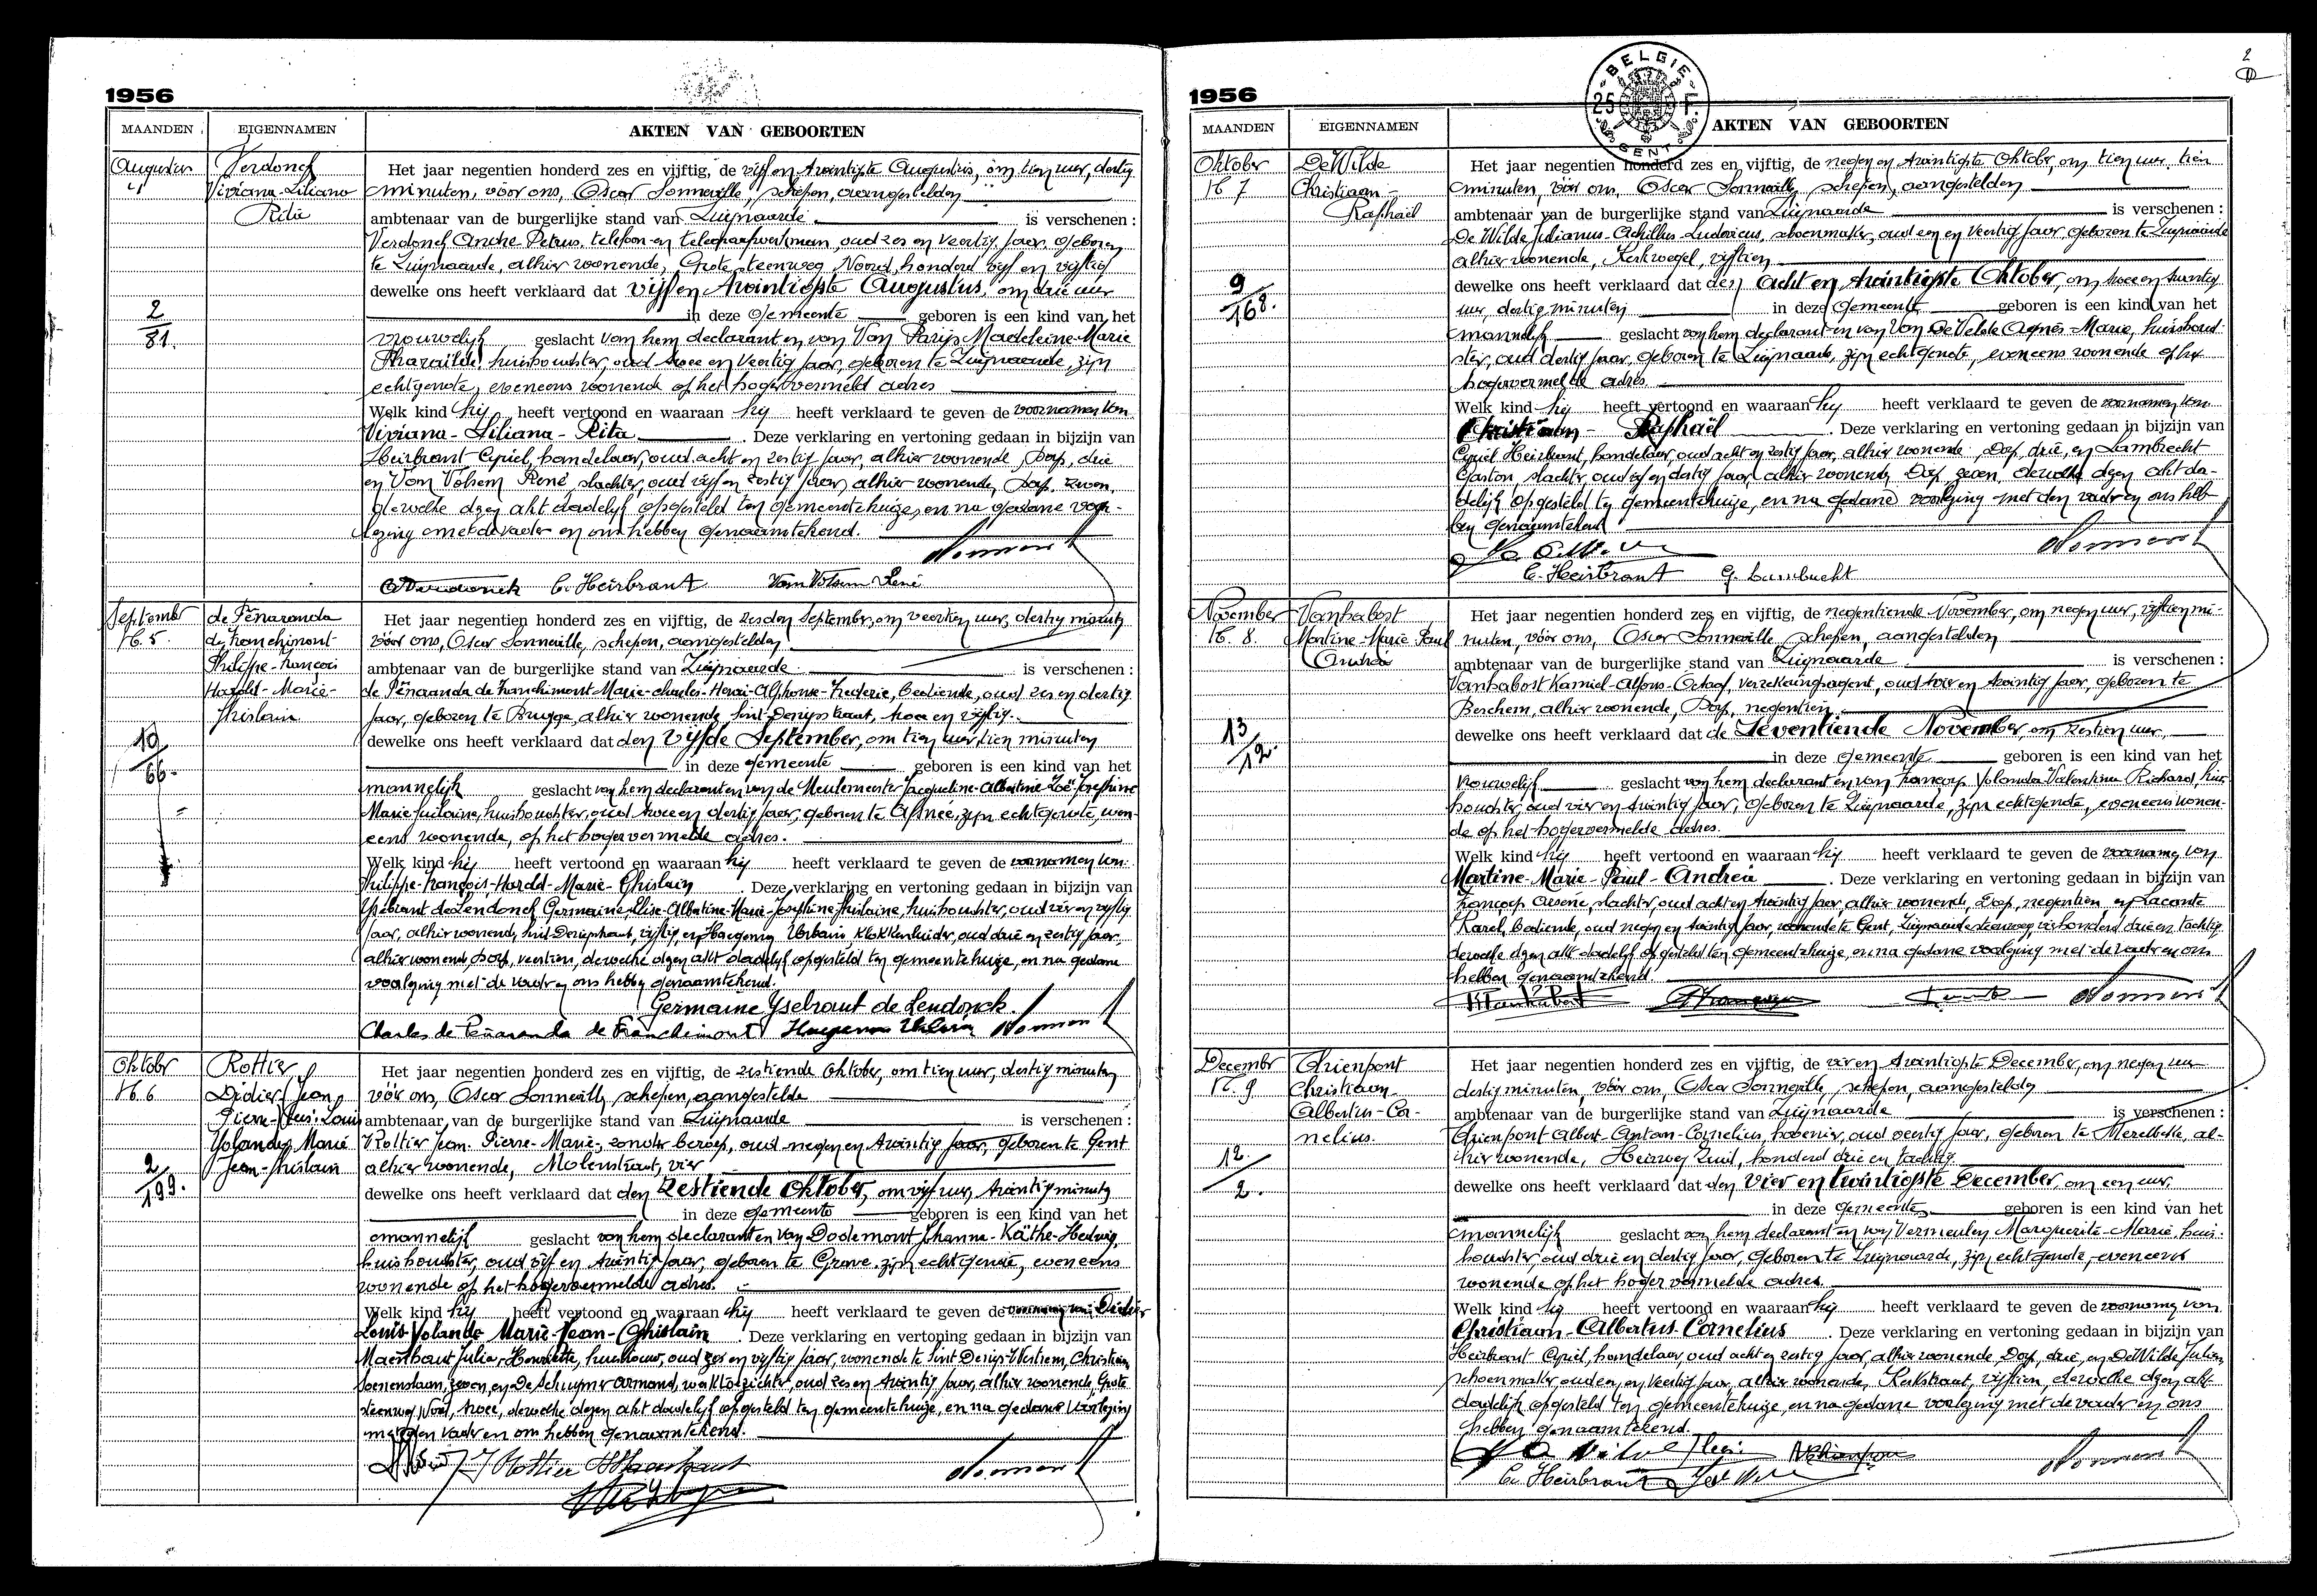 1956
MAANDEN EIGENNAMEN AKTEN VAN GEBOORTEN
Augustus
4
Verdonck
Viviana-Liliana
Rita
2
81.
Het jaar negentien honderd zes en vijftig, de vijf en twintigste Augustus, om tien uur, dertig
minuten, vóór ons, Oscar Sonneville, schepen, aangestelden
ambtenaar van de burgerlijke stand van Zwijnaarde is verschenen :
Verdonck André Petrus, telefoon en telegraafwerkman, oud zes en veertig jaar, geboren
te Zwijnaarde, alhier wonende, Grote steenweg Noord, honderd vijf en vijftig
dewelke ons heeft verklaard dat vijf en twintigste Augustus, om drie uur
in deze gemeente geboren is een kind van het
vrouwelijk geslacht van hem declarant en van Van Parijs Madeleine-Marie
Pharaïlde, huishoudster, oud twee en veertig jaar, geboren te Zwijnaarde, zijn
echtgenote, eveneens wonende op het hoger vermeld adres
Welk kind hij heeft vertoond en waaraan hij heeft verklaard te geven de voornamen van
Viviana-Liliana-Rita. Deze verklaring en vertoning gedaan in bijzijn van
Heirbrant Cyriel, handelaar, oud acht en zestig jaar, alhier wonende, Dorp, drie
en Van Volsem René, slachter, oud vijf en zestig jaar, alhier wonende, Dorp, zeven,
dewelke dezen akt dadelijk opgesteld ten gemeentehuize, en na gedane voor-
lezing met de vader en ons hebben genaamtekend.
C. Heirbrant Van Volsem René
September
No 5.
de Peñaranda
de Franchimont
Philippe-François
Harold-Marie-
Ghislain
10
66.
Het jaar negentien honderd zes en vijftig, de zesden September, om veertien uur, dertig minuten
vóór ons, Oscar Sonneville, schepen, aangestelden
ambtenaar van de burgerlijke stand van Zwijnaarde is verschenen :
de Peñaranda de Franchimont Marie-Charles-Henri-Alphonse-Frederic, bediende, oud zes en dertig
jaar, geboren te Brugge, alhier wonende, Sint-Denijsstraat, twee en vijftig.
dewelke ons heeft verklaard dat den vijfde September, om tien uur, tien minuten
in deze gemeente geboren is een kind van het
mannelijk geslacht van hem declarant en van de Meulemeester Jacqueline-Albertine-Zoë-Josephine
Marie-Ghislaine, huishoudster, oud twee en dertig jaar, geboren te Afsnee, zijn echtgenote, even-
eens wonende, op het hogervermelde adres.
Welk kind hij heeft vertoond en waaraan hij heeft verklaard te geven de voornamen van:
Philippe-François-Harold-Marie-Ghislain. Deze verklaring en vertoning gedaan in bijzijn van
Ysebrant de Lendonck Germaine-Elise-Albertine-Marie-Josephine Ghislaine, huishoudster, oud vier en vijftig
jaar, alhier wonende, Sint-Denijsstraat, vijftig, en Haegeman Urbain, klokkenluider, oud drie en zestig jaar
alhier wonend, Dorp, veertien, dewelke dezen akt dadelijk opgesteld ten gemeentehuize, en na gedane
voorlezing met de vader en ons hebben genaamtekend.
Germaine Ysebrant de Lendonck.
Charles de Peñaranda de Franchimont
Oktober
No 6
Rottier
Didier Jean
Pierre Louis
Yolande Marie
Jean-Ghislain
2
199.
Het jaar negentien honderd zes en vijftig, de zestiende Oktober, om tien uur, dertig minuten
vóór ons, Oscar Sonneville, schepen, aangestelde
ambtenaar van de burgerlijke stand van Zwijnaarde is verschenen :
Rottier Jean-Pierre-Marie, zonder beroep, oud negen en twintig jaar, geboren te Gent
alhier wonende, Molenstraat, vier
dewelke ons heeft verklaard dat den Zestiende Oktober, om vijf uur, twintig minuten
in deze gemeente geboren is een kind van het
mannelijk geslacht van hem declarant en van Dodemont Johanna-Käthe-Hedwig
huishoudster, oud vijf en twintig jaar, geboren te Greve, zijn echtgenote, eveneens
wonende op het hogervermelde adres.
Welk kind hij heeft vertoond en waaraan hij heeft verklaard te geven de voornamen van: Didier
Louis-Yolande-Marie-Jean-Ghislain. Deze verklaring en vertoning gedaan in bijzijn van
Maenhaut Julia-Henriette, huisvrouw, oud zes en vijftig jaar, wonende te Sint Denijs-Westrem, Christiaan
Soenenslaan, zeven, en De Schuymer Armand, werktoezichter, oud zes en twintig jaar, alhier wonende, Grote
steenweg Noord, twee, dewelke dezen akt dadelijk opgesteld ten gemeentehuize, en na gedane voorlezing
met den vader en ons hebben genaamtekend.
J Rottier
1956
BELGIE
25 F
GENT
2
MAANDEN EIGENNAMEN AKTEN VAN GEBOORTEN
Oktober
No 7
De Wilde
Christiaan-
Raphaël
9
168.
Het jaar negentien honderd zes en vijftig, de negen en twintigste Oktober, om tien uur, tien
minuten, vóór ons, Oscar Sonneville, schepen, aangestelden
ambtenaar van de burgerlijke stand van Zwijnaarde is verschenen :
De Wilde Julianus-Achilles-Ludovicus, schoenmaker, oud een en veertig jaar, geboren te Zwijnaarde
alhier wonende, Kerkwegel, vijftien
dewelke ons heeft verklaard dat den acht en twintigste Oktober, om twee en twintig
uur, dertig minuten in deze gemeente geboren is een kind van het
mannelijk geslacht van hem declarant en van Van De Velde Agnes-Marie, huishoud-
ster, oud dertig jaar, geboren te Zwijnaarde, zijn echtgenote, eveneens wonende op het
hogervermelde adres
Welk kind hij heeft vertoond en waaraan hij heeft verklaard te geven de voornamen van
Christiaan-Raphaël. Deze verklaring en vertoning gedaan in bijzijn van
Cyriel Heirbrant, handelaar, oud acht en zestig jaar, alhier wonende, Dorp, drie, en Lambrecht
Gaston, slachter, oud en dertig jaar alhier wonende, Dorp zeven, dewelke dezen akt da-
delijk opgesteld ten gemeentehuize, en na gedane voorlezing met den vader en ons heb-
ben genaamtekend
C. Heirbrant G. Lambrecht
November
No 8.
Vanhabost
Martine-Marie-Paul
Andrea
13
12.
Het jaar negentien honderd zes en vijftig, de negentiende November, om negen uur, vijftien mi-
nuten, vóór ons, Oscar Sonneville, schepen, aangestelden
ambtenaar van de burgerlijke stand van Zwijnaarde is verschenen :
Vanhabost Kamiel-Alfons-Octaaf, verzekeringsagent, oud vier en twintig jaar, geboren te
Berchem, alhier wonende, Dorp, negentien
dewelke ons heeft verklaard dat de Zeventiende November, om zestien uur,
in deze gemeente geboren is een kind van het
vrouwelijk geslacht van hem declarant en van Francoys Yolanda Valentina Richard, huis-
houdster, oud vier en twintig jaar, geboren te Zwijnaarde, zijn echtgenote, eveneens wonen-
de op het hogervermelde adres.
Welk kind hij heeft vertoond en waaraan hij heeft verklaard te geven de voornamen van
Martine-Marie-Paul-Andrea. Deze verklaring en vertoning gedaan in bijzijn van
Francoys Arsène, slachter, oud acht en twintig jaar, alhier wonende, Dorp, negentien, en Lacante
Karel, bediende, oud negen en twintig jaar, wonende te Gent, Zwijnaardesteenweg, vierhonderd drie en tachtig
dewelke dezen akt dadelijk opgesteld ten gemeentehuize, en na gedane voorlezing met de vader en ons
hebben genaamtekend.
December
No 9
Drienpont
Christiaan-
Albertus-Cor-
nelius.
12.
2.
Het jaar negentien honderd zes en vijftig, de vier en twintigste December, om negen uur
dertig minuten, vóór ons, Oscar Sonneville, schepen, aangestelden
ambtenaar van de burgerlijke stand van Zwijnaarde is verschenen :
Drienpont Albert-Antoon-Cornelius, hovenier, oud veertig jaar, geboren te Merelbeke, al-
hier wonende, Heirweg Zuid, honderd drie en tachtig
dewelke ons heeft verklaard dat den vier en twintigste December, om een uur,
in deze gemeente geboren is een kind van het
mannelijk geslacht van hem declarant en van Vermeulen Marguerite-Marie, huis-
houdster, oud drie en dertig jaar, geboren te Zwijnaarde, zijn echtgenote, eveneens
wonende op het hoger vermelde adres.
Welk kind hij heeft vertoond en waaraan hij heeft verklaard te geven de voornamen van
Christiaan-Albertus-Cornelius. Deze verklaring en vertoning gedaan in bijzijn van
Heirbrant Cyriel, handelaar, oud acht en zestig jaar, alhier wonende, Dorp, drie, en De Wilde Julien,
schoenmaker, oud een en veertig jaar, alhier wonende, Kerkstraat, vijftien, dewelke dezen akt
dadelijk opgesteld ten gemeentehuize, en na gedane voorlezing met de vader en ons
hebben genaamtekend.
C. Heirbrant